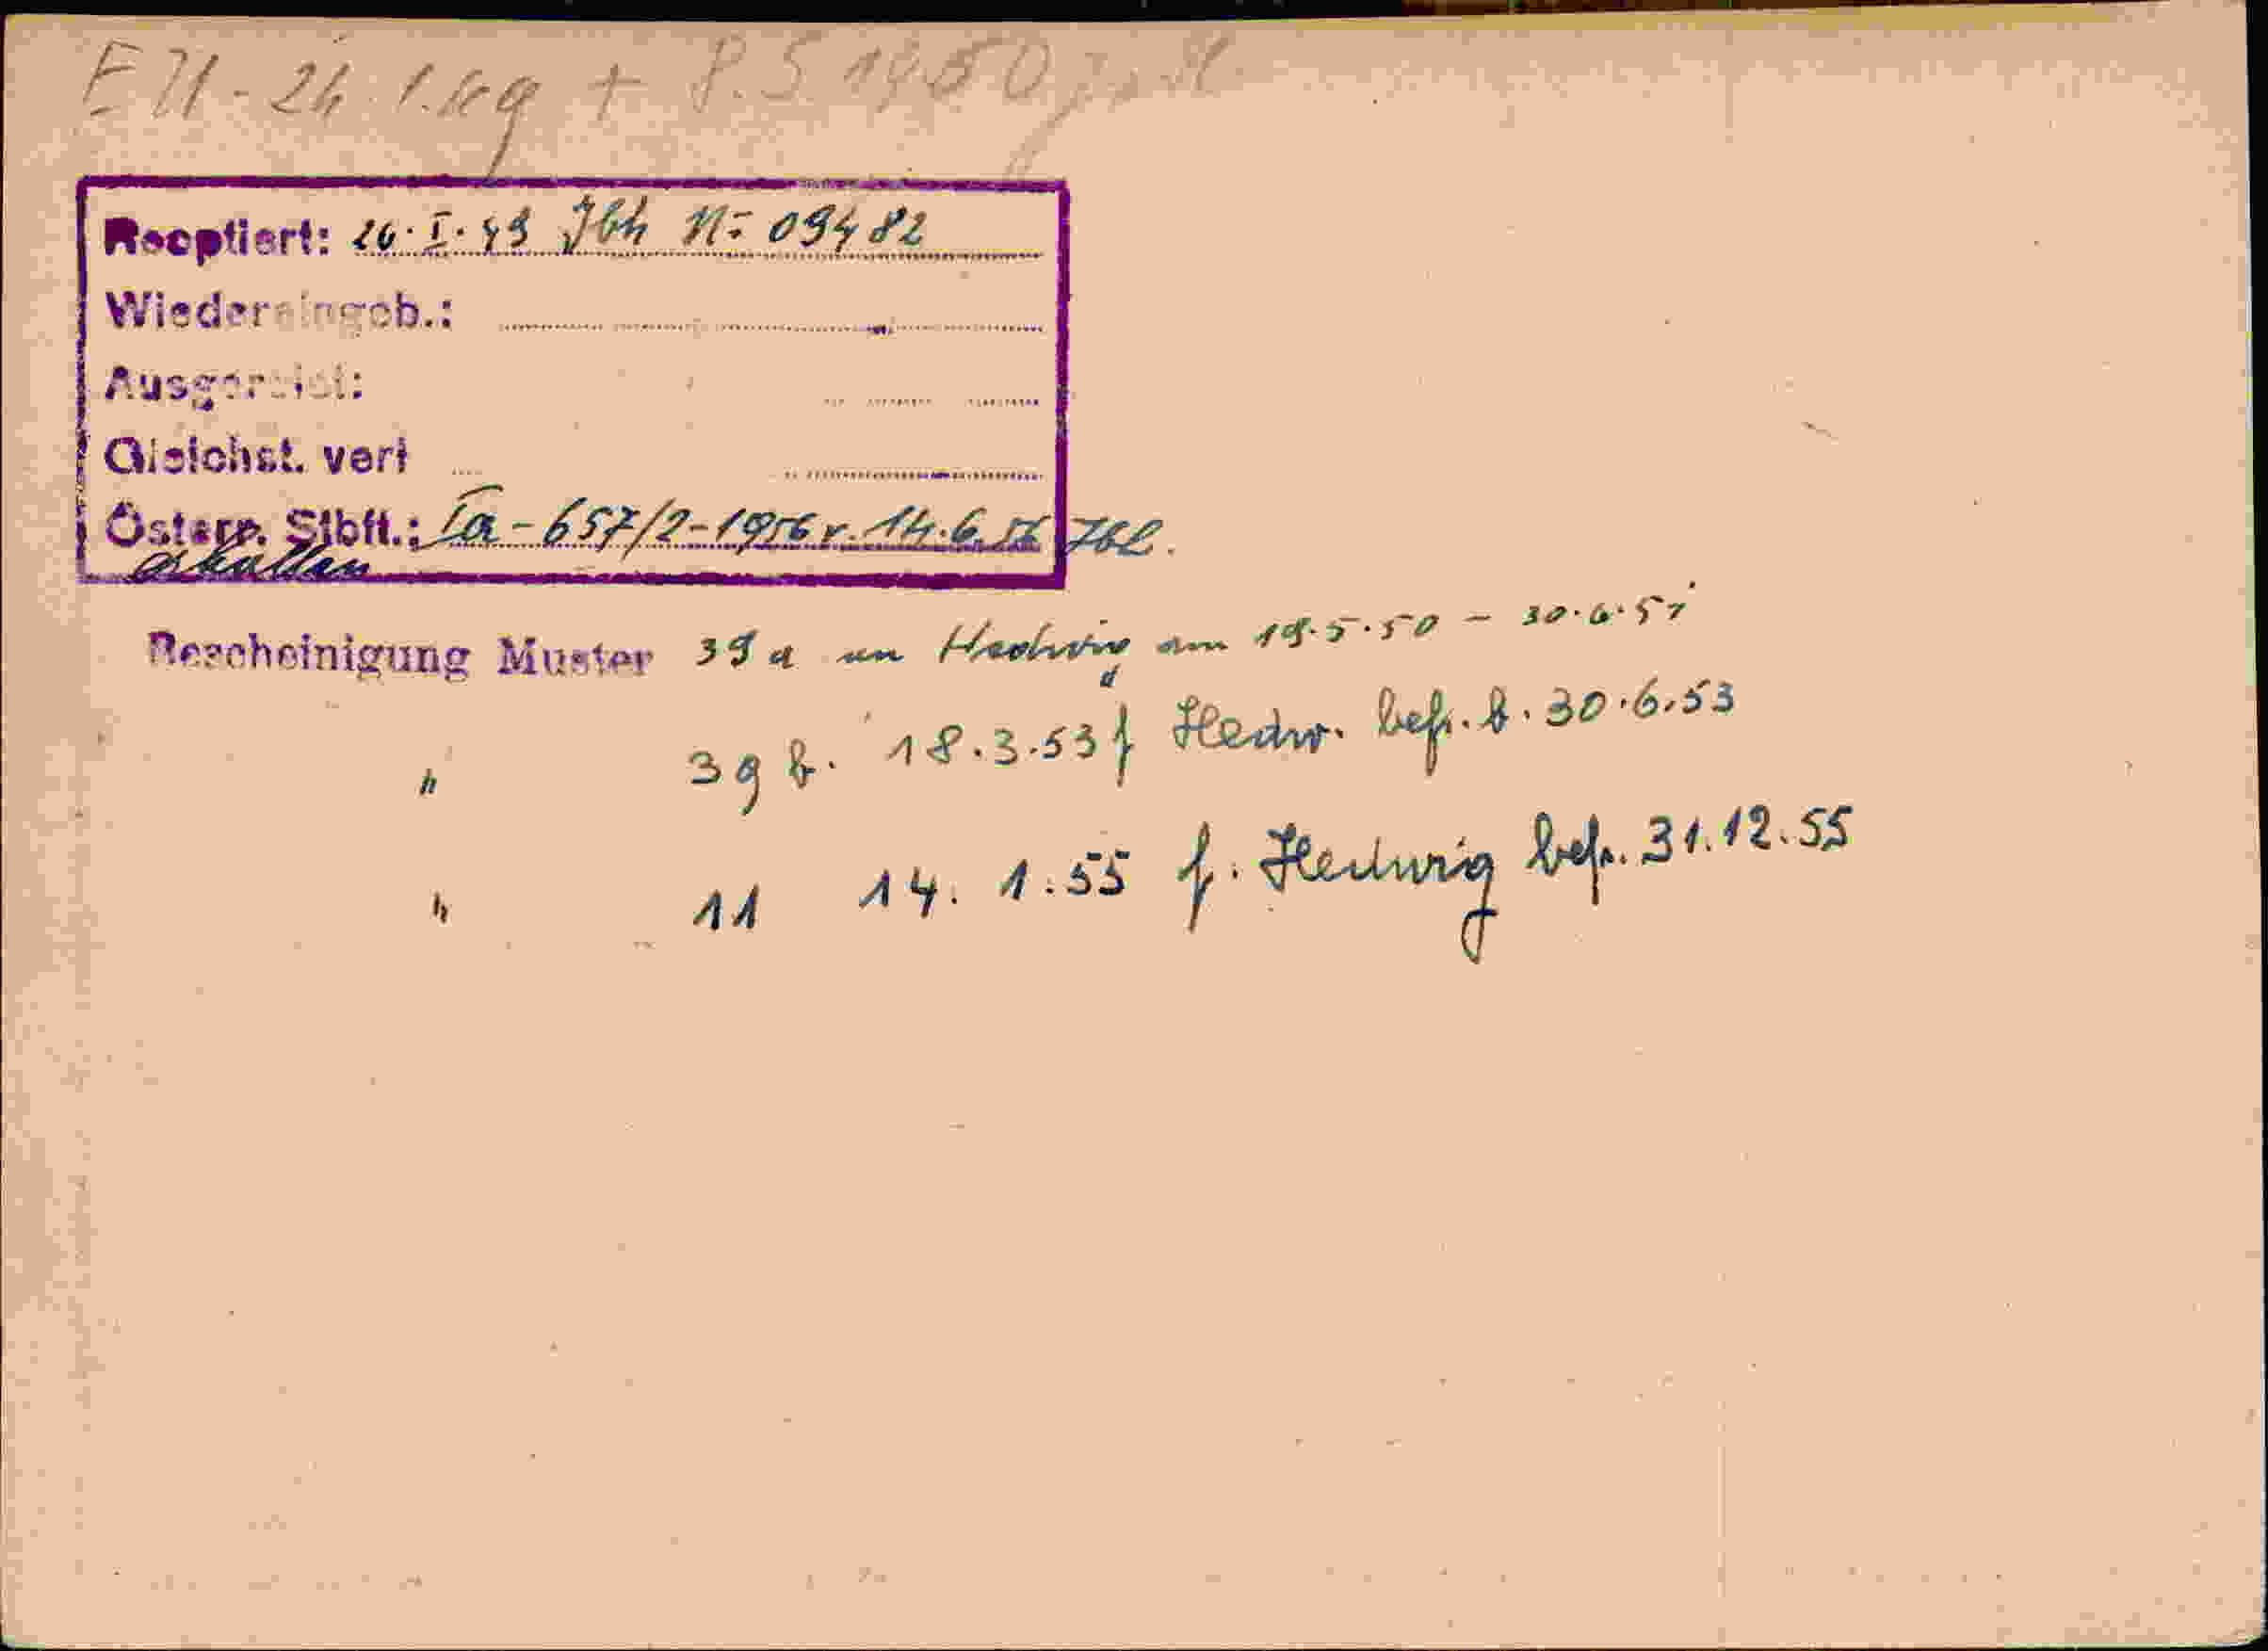 E 71 - 24. 1. kg + P.S 1950
Reoptiert: 20.I.49 Jbk Nr 09482
Wiedereingeb.:
Ausgereist:
Gleichst. verl
Österr. Stbft.: Ia - 657/2-1956 v. 14.6.56
erhalten
Bescheinigung Muster 39 a an Hedwig am 19.5.50 - 30.6.51
" 39 b. 18.3.53 f Hedw. bef. b. 30.6.53
" 11 14. 1.55 f. Hedwig bef. 31.12.55